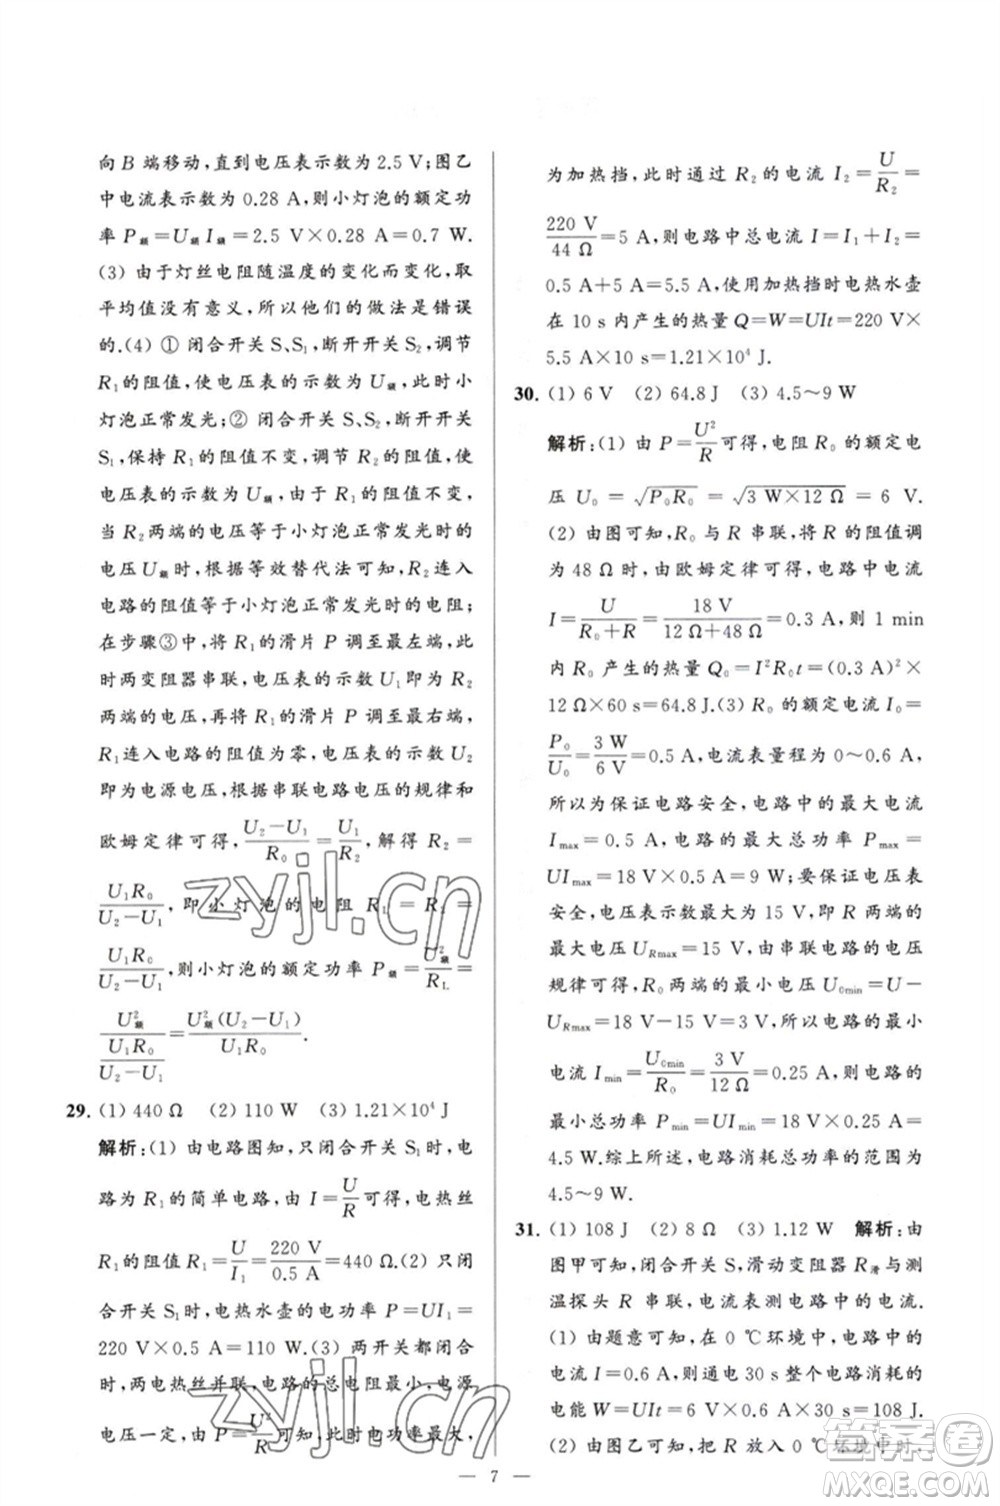 向 B 端移动,直到电压表示数为 2.5 V;图乙
中电流表示数为 0.28 A,则小灯泡的额定功
率 P额=U额 I额=2.5 V×0.28 A=0.7 W.
(3) 由于灯丝电阻随温度的变化而变化,取
平均值没有意义,所以他们的做法是错误
的.(4) ① 闭合开关 S、S₁,断开开关 S₂,调节
R₁的阻值,使电压表的示数为 U额,此时小
灯泡正常发光;② 闭合开关 S、S₂,断开开关
S₁,保持 R₁ 的阻值不变,调节 R₂ 的阻值,使
电压表的示数为 U额,由于 R₁ 的阻值不变,
当 R₂两端的电压等于小灯泡正常发光时的
电压 U额时,根据等效替代法可知,R₂连入
电路的阻值等于小灯泡正常发光时的电阻;
在步骤③中,将 R₁的滑片 P 调至最左端,此
时两变阻器串联,电压表的示数 U₁即为 R₂
两端的电压,再将 R₁的滑片 P 调至最右端,
R₁连入电路的阻值为零,电压表的示数 U₂
即为电源电压,根据串联电路电压的规律和
欧姆定律可得,(U₂−U₁)/R₀=U₁/R₂,解得 R₂=
U₁R₀/(U₂−U₁),即小灯泡的电阻 R_L=R₂=
U₁R₀/(U₂−U₁),则小灯泡的额定功率 P额=U额²/R_L=
U额²/(U₁R₀/(U₂−U₁))=U额²(U₂−U₁)/(U₁R₀).
29. (1) 440 Ω (2) 110 W (3) 1.21×10⁴ J
解析:(1) 由电路图知,只闭合开关 S₁时,电
路为 R₁的简单电路,由 I=U/R可得,电热丝
R₁的阻值 R₁=U/I₁=220 V/0.5 A=440 Ω.(2) 只闭
合开关 S₁时,电热水壶的电功率 P=UI₁=
220 V×0.5 A=110 W.(3) 两开关都闭合
时,两电热丝并联,电路的总电阻最小,电源
电压一定,由 P=U²/R可知,此时电功率最大,
为加热挡,此时通过 R₂ 的电流 I₂=U/R₂=
220 V/44 Ω=5 A,则电路中总电流 I=I₁+I₂=
0.5 A+5 A=5.5 A,使用加热挡时电热水壶
在 10 s 内产生的热量 Q=W=UIt=220 V×
5.5 A×10 s=1.21×10⁴ J.
30. (1) 6 V (2) 64.8 J (3) 4.5~9 W
解析:(1) 由 P=U²/R可得,电阻 R₀ 的额定电
压 U₀=√(P₀R₀)=√(3 W×12 Ω)=6 V.
(2) 由图可知,R₀ 与 R 串联,将 R 的阻值调
为 48 Ω 时,由欧姆定律可得,电路中电流
I=U/(R₀+R)=18 V/(12 Ω+48 Ω)=0.3 A,则 1 min
内 R₀ 产生的热量 Q₀=I²R₀t=(0.3 A)²×
12 Ω×60 s=64.8 J.(3) R₀ 的额定电流 I₀=
P₀/U₀=3 W/6 V=0.5 A,电流表量程为 0~0.6 A,
所以为保证电路安全,电路中的最大电流
Imax=0.5 A,电路的最大总功率 Pmax=
UImax=18 V×0.5 A=9 W;要保证电压表
安全,电压表示数最大为 15 V,即 R 两端的
最大电压 URmax=15 V,由串联电路的电压
规律可得,R₀两端的最小电压 U0min=U−
URmax=18 V−15 V=3 V,所以电路的最小
电流 Imin=U0min/R₀=3 V/12 Ω=0.25 A,电路的
最小总功率 Pmin=UImin=18 V×0.25 A=
4.5 W.综上所述,电路消耗总功率的范围为
4.5~9 W.
31. (1) 108 J (2) 8 Ω (3) 1.12 W 解析:由
图甲可知,闭合开关 S,滑动变阻器 R滑与测
温探头 R 串联,电流表测电路中的电流.
(1) 由题意可知,在 0 ℃环境中,电路中的
电流 I=0.6 A,则通电 30 s 整个电路消耗的
电能 W=UIt=6 V×0.6 A×30 s=108 J.
(2) 由图乙可知,把 R 放入 0 ℃环境中时,
— 7 —
zyjl.cn
zyjl.cn
答案圈
MXQE.COM